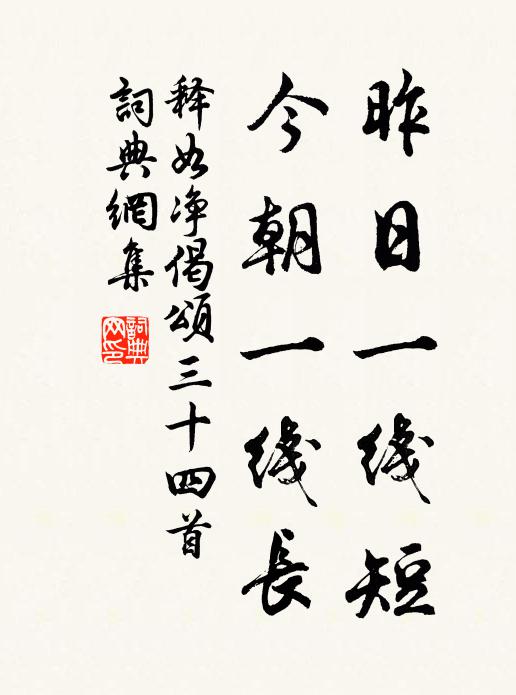 昨日一线短
今朝一线長
释如净偈頌三十四首
詞典網集
詞典网印